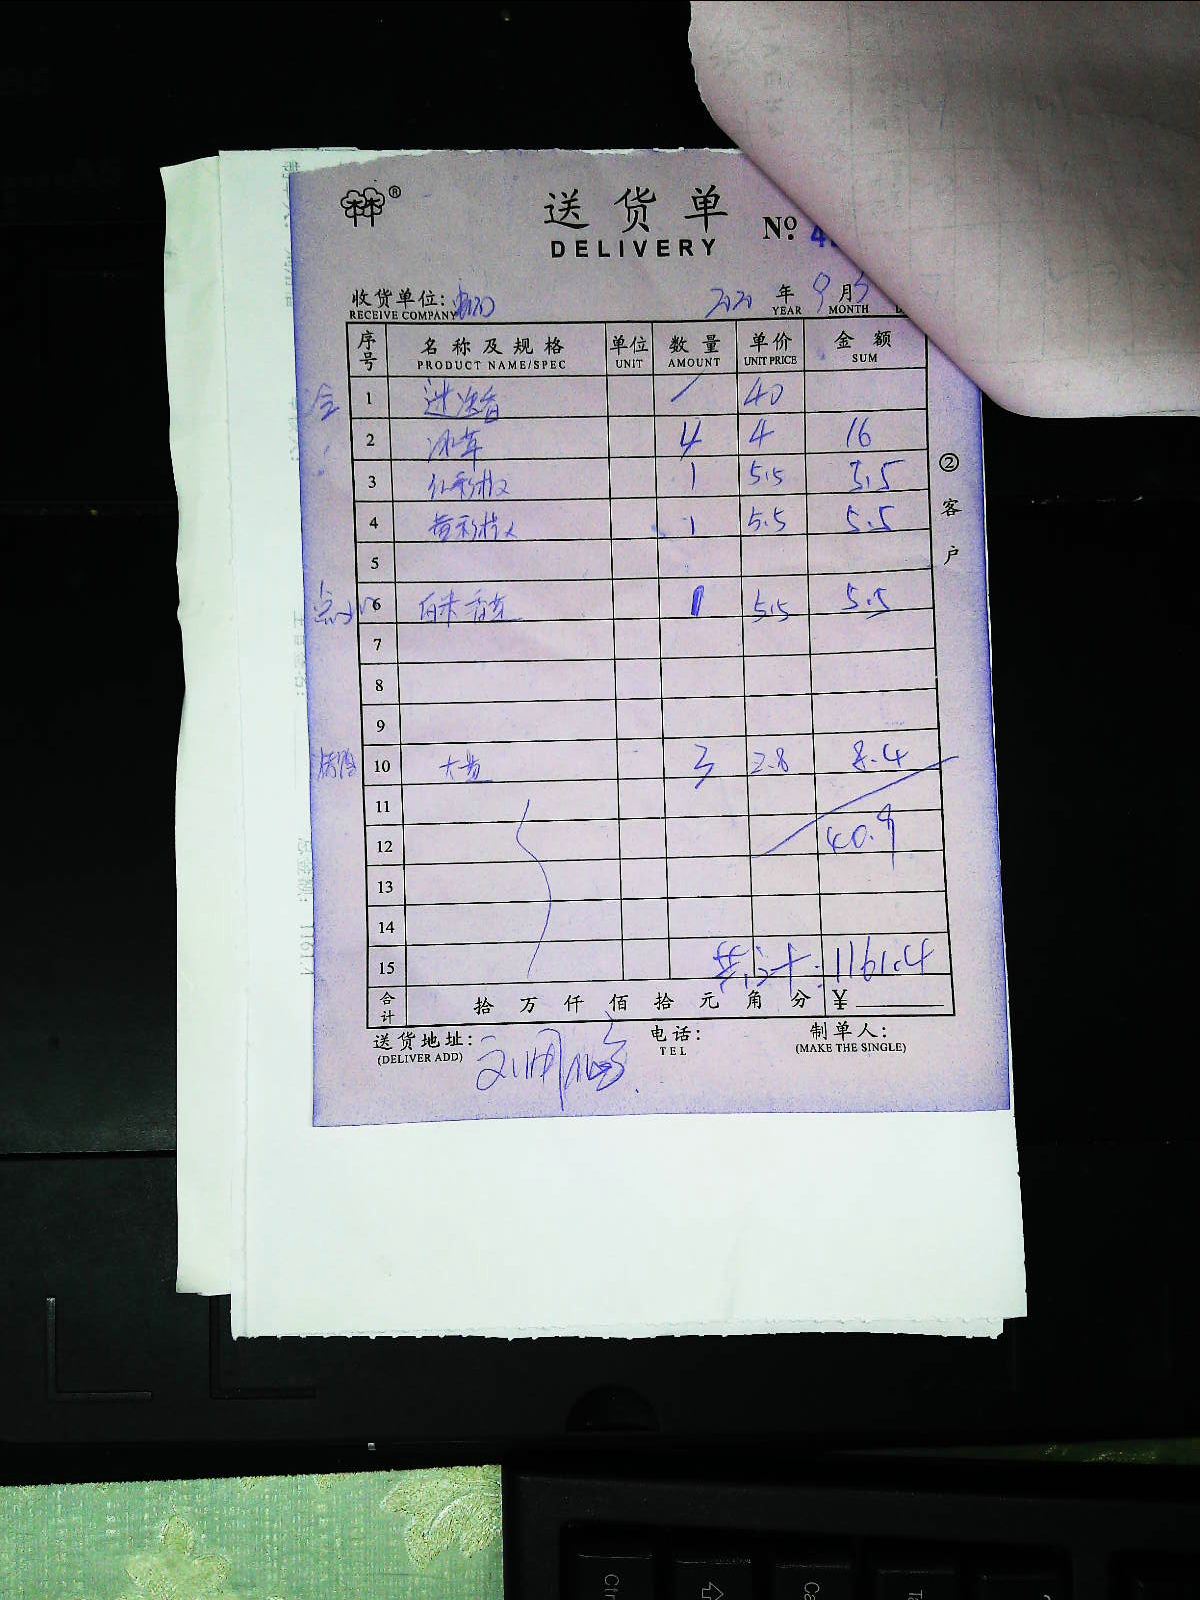 ®
送货单
DELIVERY
Nº. 4
收货单位:
RECEIVE COMPANY
2020 年 9 月 5
YEAR MONTH
序号 名称及规格 单位 数量 单价 金额
PRODUCT NAME/SPEC UNIT AMOUNT UNIT PRICE SUM
1 40
2 冰草 4 4 16
3 红彩椒 1 5.5 5.5
4 黄彩椒 1 5.5 5.5
5
点心 6 1 5.5 5.5
7
8
9
10 大葱 3 2.8 8.4
11
12 40.9
13
14
15 共计: 1161.4
合计 拾 万 仟 佰 拾 元 角 分 ¥
送货地址: 电话: 制单人:
(DELIVER ADD) TEL (MAKE THE SINGLE)
②客户
Ctrl